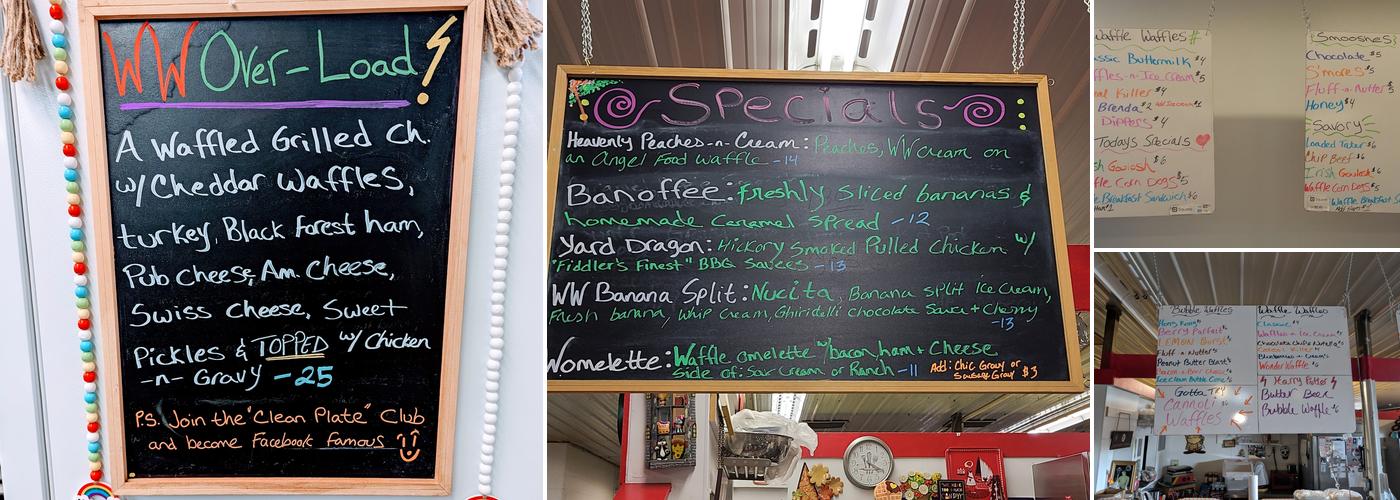 WW Over-Load!
A Waffled Grilled Ch.
w/Cheddar Waffles,
turkey, Black Forest ham,
Pub Cheese, Am. Cheese,
Swiss Cheese, Sweet
Pickles & TOPPED w/ Chicken
-n- Gravy - 25
P.S. Join the "Clean Plate" Club
and become Facebook famous
Specials
Heavenly Peaches-n-Cream: Peaches, WW Cream on
an Angel Food Waffle - 14
Banoffee: freshly sliced bananas &
homemade Caramel Spread - 12
Yard Dragon: Hickory Smoked Pulled Chicken w/
"Fiddler's Finest" BBQ Sauces - 13
WW Banana Split: Nucita, Banana split Ice Cream,
Fresh banana, Whip Cream, Ghiridelli chocolate Sauce + Cherry
- 13
Womelette: Waffle omelette w/bacon, ham + Cheese
side of: Sour Cream or Ranch - 11
Add: Chic Gravy or
Sausage Gravy $3
Waffle Waffles
ssic Buttermilk $4
ffles-n-Ice Cream $5
al Killer $4
Brenda $2
Dippers $4
Todays Specials
sh Goulosh $6
fle Corn Dogs $5
e Breakfast Sandwich $6
Smooshes
Chocolate $5
S'mores $5
Fluff-n-Nutter $5
Honey $4
Savory
Loaded Tater $6
Chip Beef $6
Irish Goulosh $6
Waffle Corn Dogs $5
Waffle Breakfast S
Bubble Waffles
Hong Kong
Berry Parfait
LEMON Burst
Fluff-n-Nutter
Peanut Butter Blast
Ice Cream Bubble Cone
Gotta Try
Cannoli
Waffles
Waffle Waffles
Classic
Waffles-n-Ice Cream
Wonder Waffle
Harry Potter
Butter Beer
Bubble Waffle $6